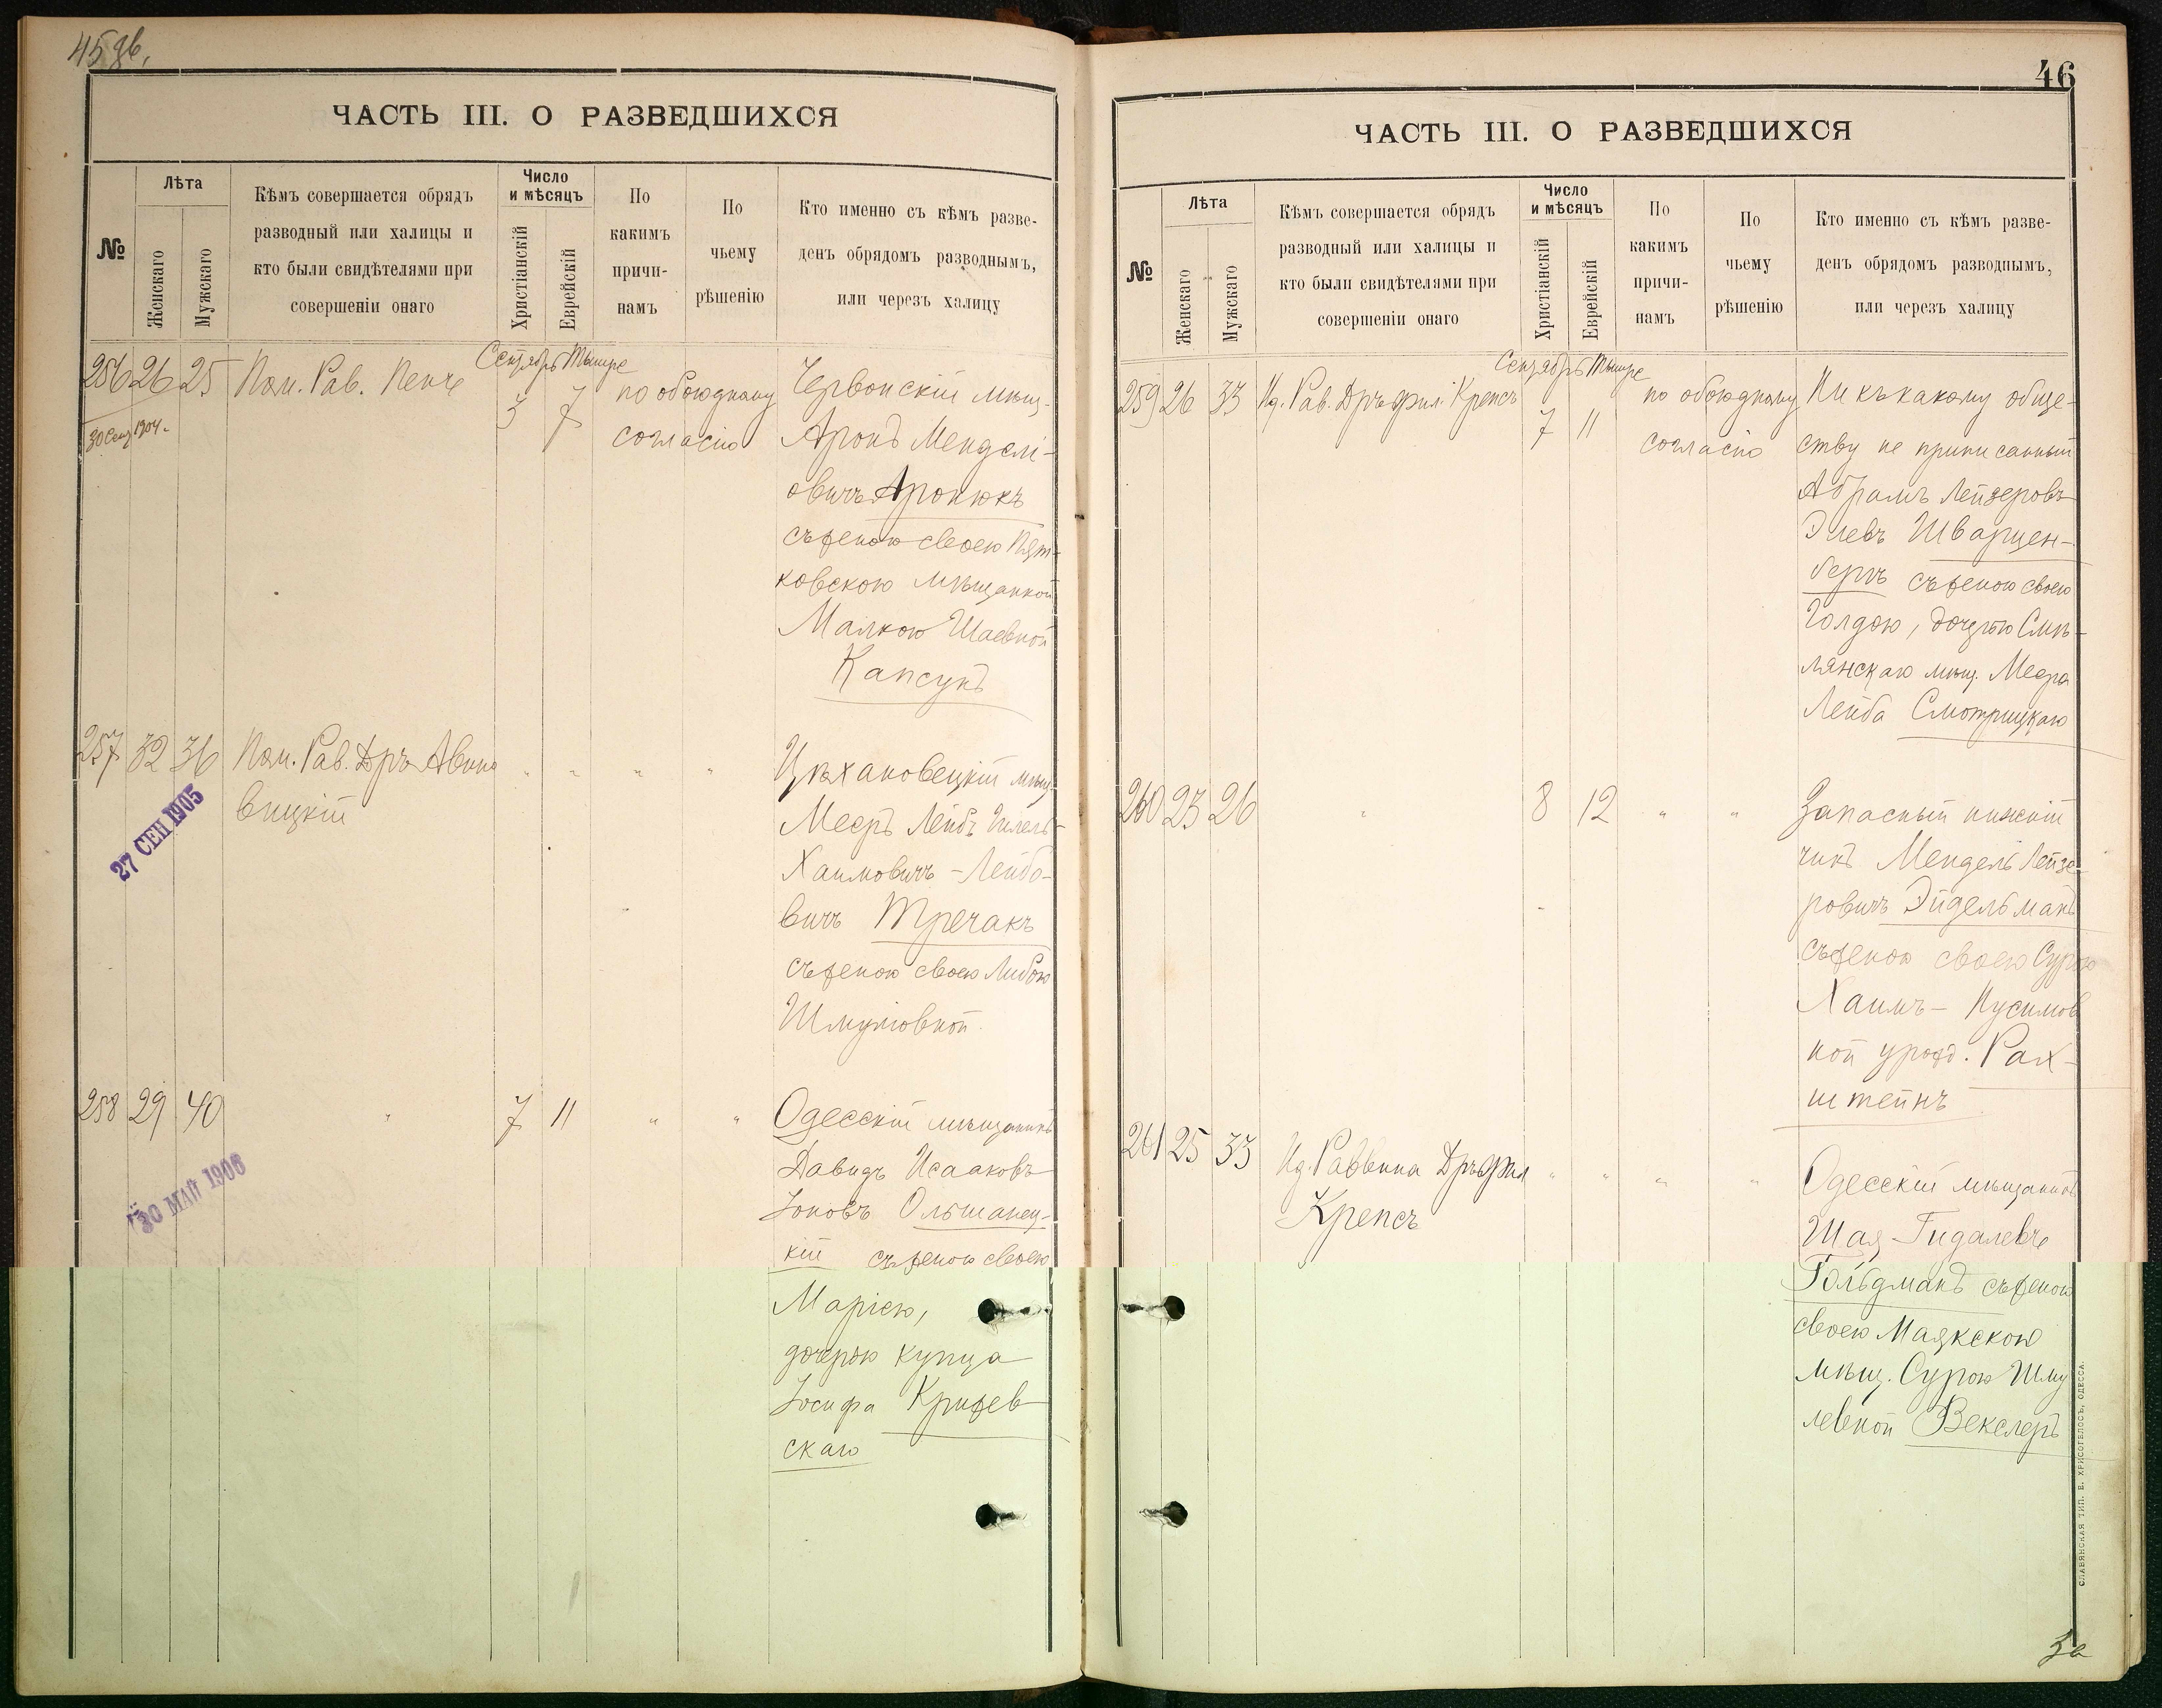 45 дв.
ЧАСТЬ III. О РАЗВЕДШИХСЯ
№
Лѣта
Женскаго
Мужскаго
Кѣмъ совершается обрядъ
разводный или халицы и
кто были свидѣтелями при
совершеніи онаго
Число
и мѣсяцъ
Христіанскій
Еврейскій
По
какимъ
причи-
намъ
По
чьему
рѣшенію
Кто именно съ кѣмъ разве-
денъ обрядомъ разводнымъ,
или черезъ халицу
Сентябрь Тышре
256 26 25 Пом. Рав. Пенъ 3 7 по обоюдному Червонскій мѣщ.
30 Сен 1904. согласію Аронъ Менделі-
овичъ Аронюкъ
съ женою своею Пят-
ковскою мѣщанкой
Малкою Шаевной
Капсунъ
257 32 36 Пом. Рав. Дръ Авино " " " " Цѣхановецкій мѣщ.
27 СЕН 1905
вицкій Мееръ Лейбъ Гилель-
Хаимовичъ - Лейбо-
вичъ Тречакъ
съ женою своею Либою
Шмулiовной.
258 29 40 " 7 11 " " Одесскій мѣщанинъ
30 МАЙ 1906
Давидъ Исааковъ
Іоновъ Ольшанец-
кій съ женою своею
Маріею,
дочерью купца
Іосифа Крижев-
скаго
46
ЧАСТЬ III. О РАЗВЕДШИХСЯ
№
Лѣта
Женскаго
Мужскаго
Кѣмъ совершается обрядъ
разводный или халицы и
кто были свидѣтелями при
совершеніи онаго
Число
и мѣсяцъ
Христіанскій
Еврейскій
По
какимъ
причи-
намъ
По
чьему
рѣшенію
Кто именно съ кѣмъ разве-
денъ обрядомъ разводнымъ,
или черезъ халицу
Сентябрь Тышре
259 26 33 Ид. Рав. Дръ фил. Крепсъ 7 11 по обоюдному Ни къ какому обще-
согласію ству не приписанный
Абрамъ Лейзеровъ
Элевъ Шварцен-
бергъ съ женою своею
Голдою, дочерью Смѣ-
лянскаго мѣщ. Меера
Лейба Смотрицкаго
260 23 26 " 8 12 " " Запасный нижній
чинъ Мендель Лейзе-
ровичъ Эйдельманъ
съ женою своею Сурою
Хаимъ - Нусимов
ной урожд. Рах-
штейнъ
261 25 33 Ид. Раввина Дръ фил " " " " Одесскій мѣщанинъ
Крепсъ Шая Гидалевъ
Гольдманъ съ женою
своею Маякскою
мѣщ. Сурою Шму
левной Векслеръ
СЛАВЯНСКАЯ ТИП. Е. ХРИСОГЕЛОСЪ, ОДЕССА.